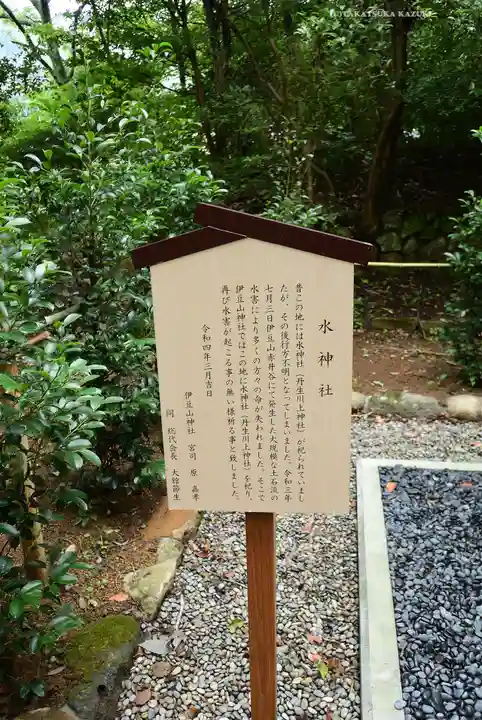 水神社
昔この地には水神社（丹生川上神社）が祀られていまし
たが、その後行方不明となってしまいました。令和三年
七月三日伊豆山赤井谷にて発生した大規模な土石流の
水害により多くの方々の命が失われました。そこで
伊豆山神社ではこの地に水神社（丹生川上神社）を祀り、
再び水害が起こる事の無い様祈る事と致しました。
令和四年三月吉日
伊豆山神社 宮司 原 嘉孝
同 総代会長 大舘節生
KATSUKA KAZUKI